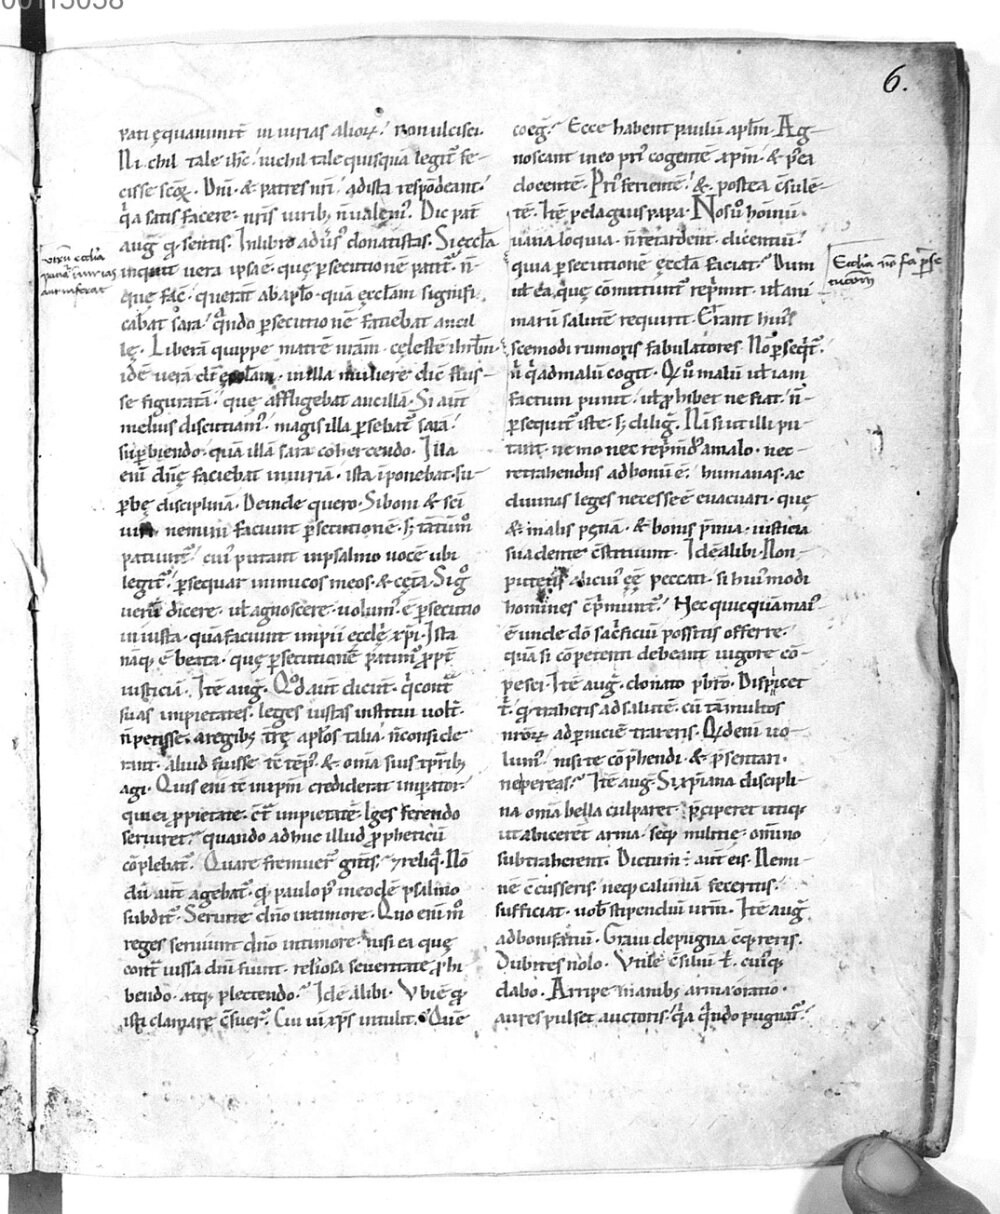 00113038
6.
pati ęquanimit̄ iniurias alioꝝ. non ulcisci.
Nichil tale ihc̄. nichil tale quisquā legit̄ fe-
cisse scōꝝ. Dn̄i & patres nr̄i. ad ista respōdeant.
q̄a satis facere. nr̄is uirib; n̄ ualem᷒. Dic pat̄
auḡ qđ sentis. In libro aduersꝰ donatistas. Si ęcc̄la
inquit uera ipsa ē. quę ꝑsecutionē patit᷒. n̄
quę fac̄. querat ab apl̄o quā ęcc̄lam signifi
cabat sara. q̄ndo ꝑsecutionē faciebat ancil
lę. Liberā quippe matrē nr̄am. cęlestē ihrl̄m.
idē ueră dī ęcc̄lam. in illa muliere dic̄ fuis-
se figuratā. quę affligebat ancillā. Si aut̄
melius discutiam᷒. magis illa ꝑsebat᷒ sarā.
suꝑbiendo. quā illā sara cohercendo. Illa
eni dn̄ę faciebat iniuriā. ista īponebat su-
ꝑbę disciplinā. Deinde quero. Si boni & sci
uiri nemini faciunt ꝑsecutionē. s; tātum̄
patiunt᷒. cui᷒ putant in psalmo uocē ubi
legit᷒. ꝑsequar inimicos meos. & cet̄a. Si gͦ
uerū dicere. ut̄ agnoscere uolum᷒. ē ꝑsecutio
iniusta. quā faciunt impii ęccłę xp̄i. Ista
nāq; ē beata. quę ꝑsecutionē patim᷒ ꝓpt̄
iusticiā. Itē auḡ. Qđ aut̄ dicūt. q̄ cont̄
suas impietates. leges iustas institui uolt̄.
n̄ petisse. a regib; t̄rę aplōs talia n̄ conside
rant. aliud fuisse tē tēp᷒. & om̄ia suis tp̄rib;
agi. Quis eni tē in xp̄m crediderat impator.
qui ei ꝓ pietate. c̄t̄ impietatē. lges ferendo
seruiret. quando adhuc illud ꝓpheticū
cōplebat᷒. Quare fremuer̄ gn̄ts. 7 reliq̄. Nō
dū aut̄ agebat᷒. qđ paulo p᷒ in eodē psalmo
subdit᷒. Seruite dn̄o in timore. Quo eni m̄
reges seruiunt dn̄o in timore. nisi ea quę
cont̄ iussa dn̄i fiunt. religiosa seueritate ꝓhi
bendo. atq; plectendo. Idē alibi. Vbi ē qđ
isti clamare c̄suer̄. Cui uī xp̄s intulit. Quē
coeg᷒. Ecce habent paulū apl̄m. Ag-
noscant in eo pri᷒ cogentē xp̄m. & p᷒ea
docentē. Pri᷒ ferientē. & postea c̄sulē-
tē. Itē pelagius papa. Nos uͦ hoīnū
uana loquia. n̄ retardent. dicentiū
quia ꝑsecutionē ęcc̄la faciat. Dum
ut̄ ea. quę cōmittunt᷒ rep̄mit. ut̄ ani
marū salutē requirit. Errant hui᷒
scemodi rumoris fabulatores. Nō ꝑseq̄t᷒.
n̄ q̄ ad malū cogit. Q uͦ malū ut̄ iam
factum punit. ut̄ ꝓhibet ne fiat. n̄
ꝑsequit᷒ iste. s; dilig᷒. Nā si ut illi pu-
tant. nemo nec rep̄mend᷒ a malo. nec
retrahendus ad bonū ē. humanas ac
diuinas leges necesse ē euacuari. quę
& malis pęnā. & bonis p̄mia. iusticia
suadente c̄stituunt. Idē alibi. Non
putetis alicui᷒ ęē peccati. si hui᷒modi
homines c̄p̄munt᷒. Hec quicquā mai᷒
ē unde dō sac̄ficiū possitis offerre.
quā si cōpetenti debeant uigore cō-
pesci. Itē auḡ. donato p̄bro. Displicet
t᷒. qđ traheris ad salutē. cū tā multos
nr̄oꝝ. ad ꝑniciē traxeris. Qđ eni uo-
lum᷒. nisi te cōp̄hendi. & p̄sentari.
ne pereas. Itē auḡ. Si xp̄iana discipli-
na om̄ia bella culparet. p̄ciperet utiq;
ut abicerēt arma. seq; militie om̄ino
subtraherent. Dictum ē aut̄ eis. Nemi-
nē c̄cusseris. neq; calūniā feceritis.
sufficiat uob᷒ stipendiū ur̄m. Itē auḡ.
ad bonifatiū. Graui de pugna c̄q̄reris.
Dubites nolo. Vtile c̄siliū t᷒. tuisq;
dabo. Arripe manib; arma oratio
aures pulset auctoris. q̄a q̄ndo pugnat᷒.
Ecclia nō fa ꝑse
cucōm